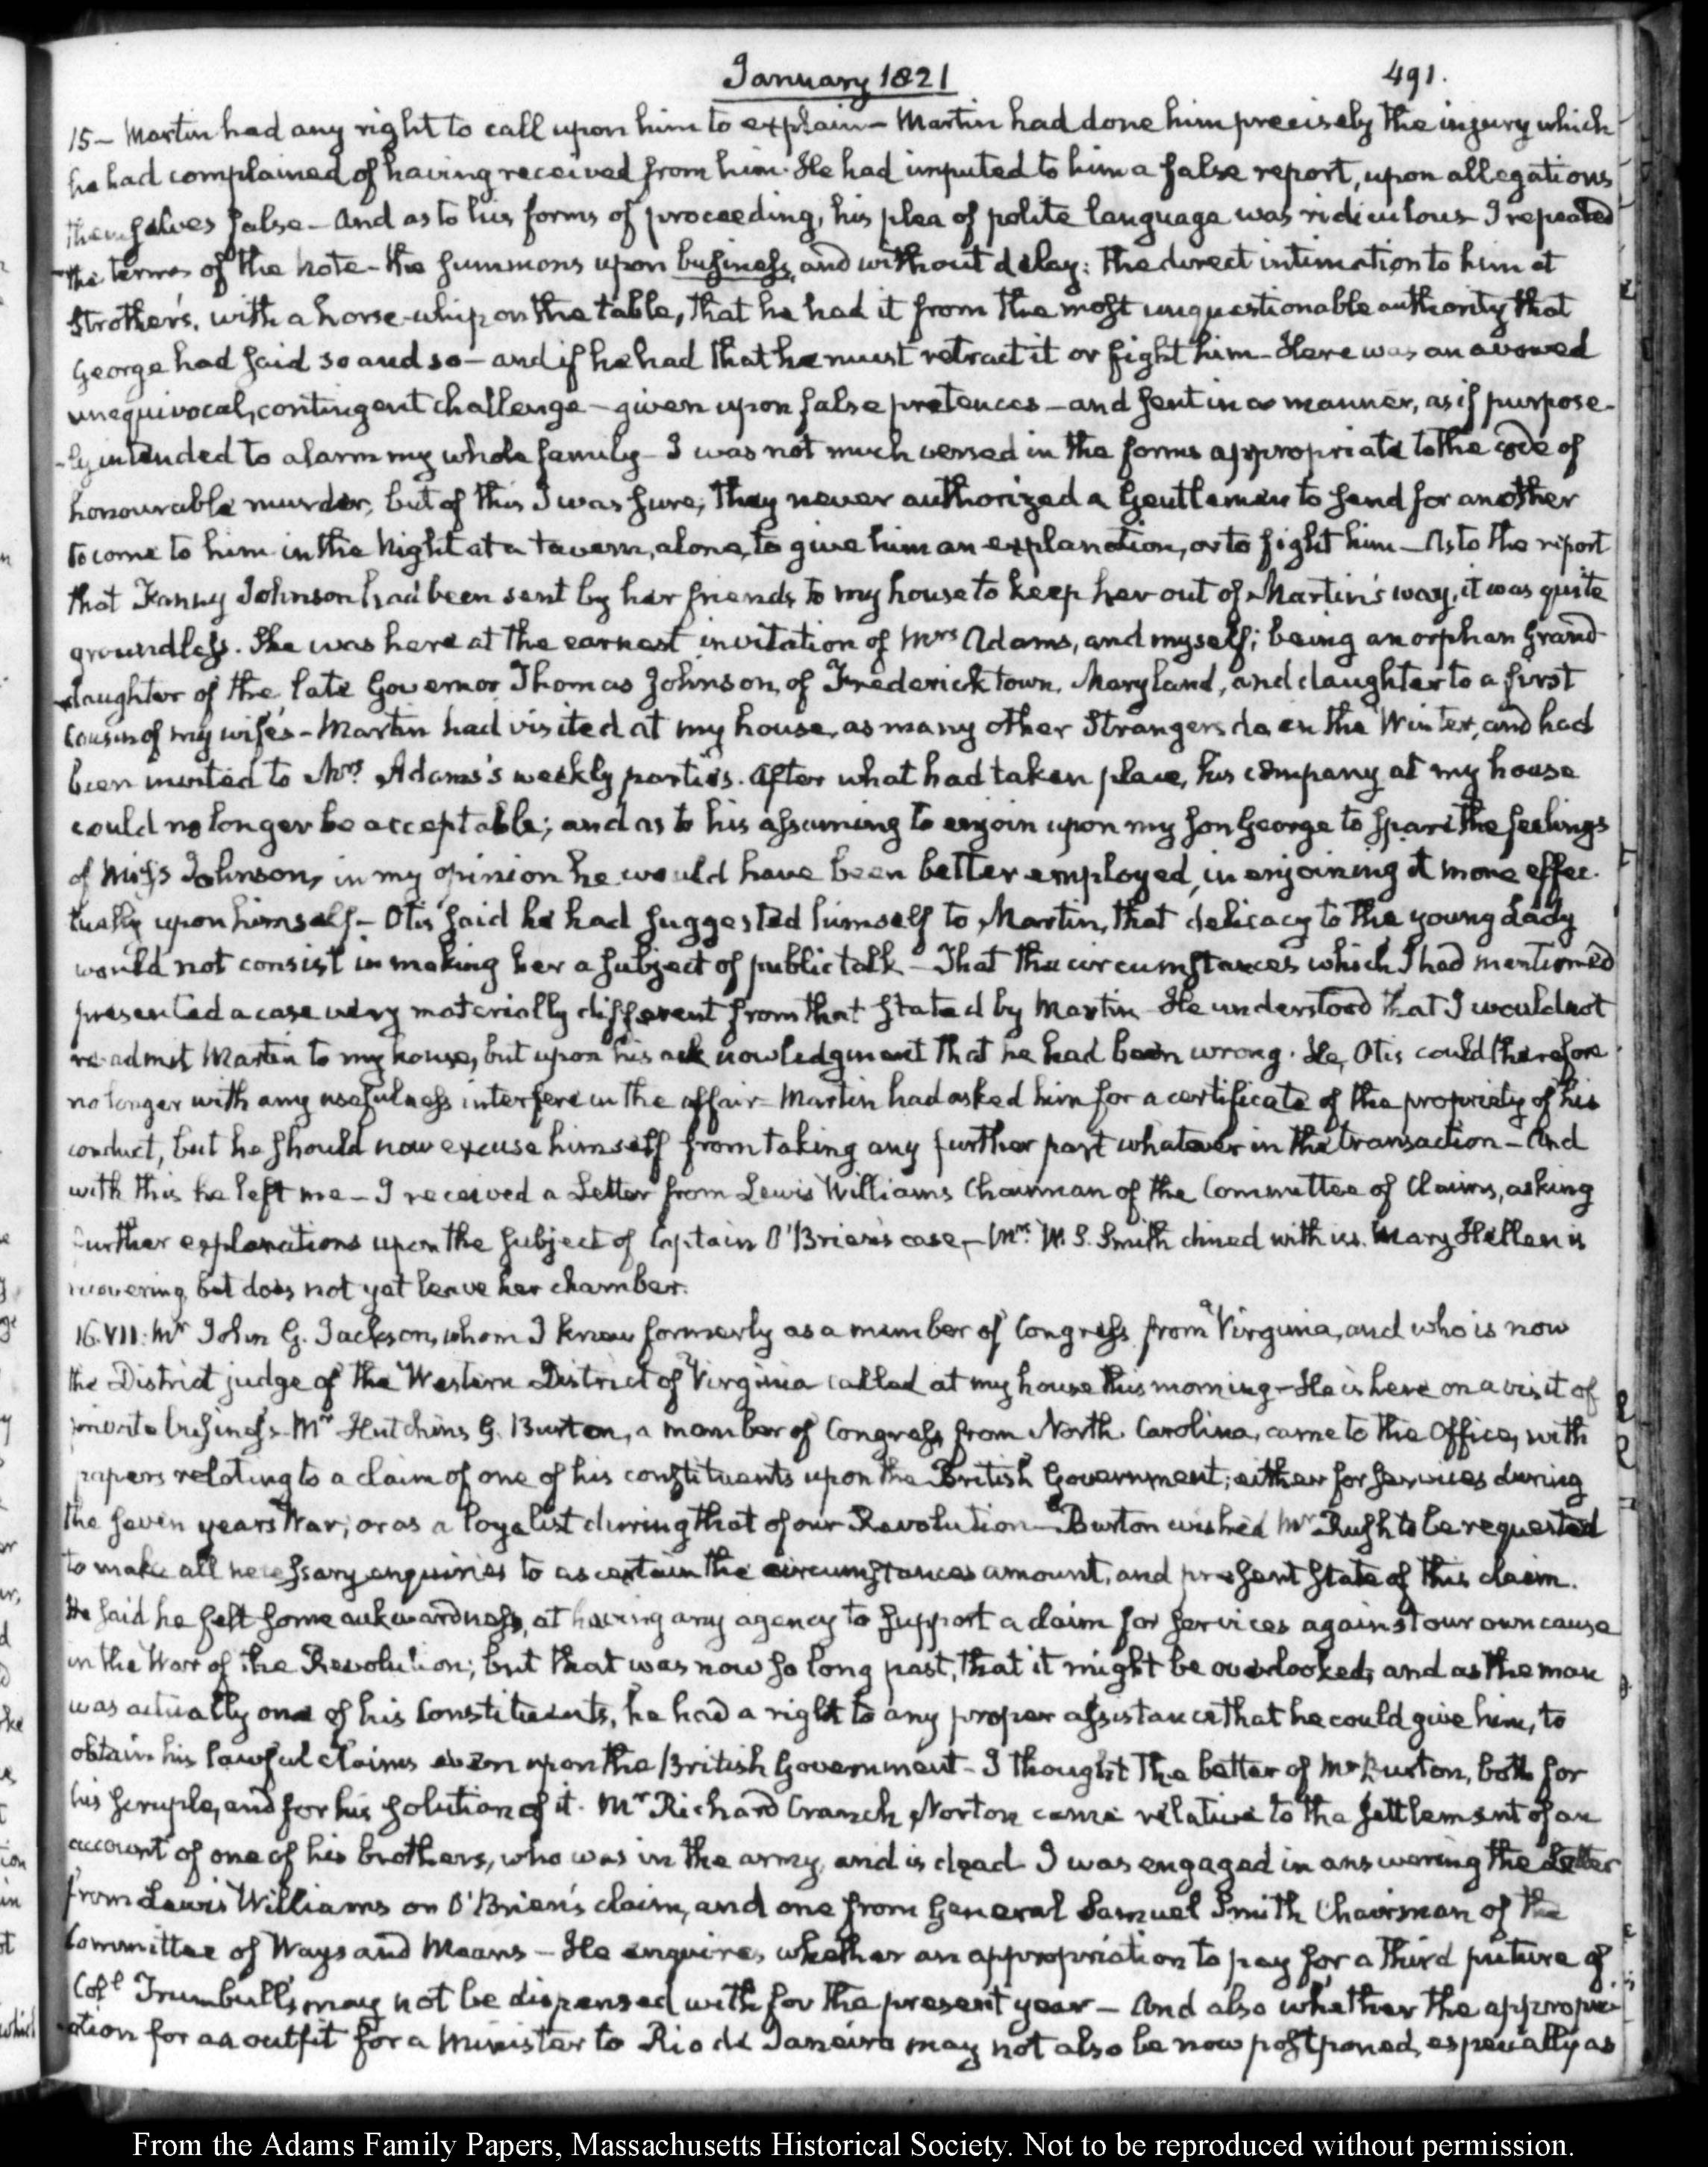 January 1821
491.
15 - Martin had any right to call upon him to explain - Martin had done him precisely the injury which
he had complained of having received from him. He had imputed to him a false report, upon allegations
themselves false - And as to his forms of proceeding, his plea of polite language was ridiculous - I repeated
the terms of the Note - the summons upon business, and without delay: the direct intimation to him at
Strother's, with a horse-whip on the table, that he had it from the most unquestionable authority that
George had said so and so - and if he had that he must retract it or fight him - Here was an avowed
unequivocal, contingent challenge - given upon false pretences - and sent in a manner, as if purpose-
-ly intended to alarm my whole family - I was not much versed in the forms appropriate to the code of
honourable murder, but of this I was sure, they never authorized a Gentleman to send for another
to come to him in the Night at a tavern, alone, to give him an explanation, or to fight him - As to the report
that Fanny Johnson had been sent by her friends to my house to keep her out of Martin's way, it was quite
groundless. She was here at the earnest invitation of Mrs Adams, and myself; being an orphan Grand
daughter of the late Governor Thomas Johnson, of Frederick town, Maryland, and daughter to a first
Cousin of my wife's - Martin had visited at my house, as many other Strangers do in the Winter, and had
been invited to Mrs. Adams's weekly parties. After what had taken place, his company at my house
could no longer be acceptable; and as to his assuming to enjoin upon my Son George to spare the feelings
of Miss Johnson, in my opinion he would have been better employed, in enjoining it more effec-
tually upon himself - Otis said he had suggested himself to Martin, that delicacy to the young Lady
would not consist in making her a subject of public talk - That the circumstances which I had mentioned
presented a case very materially different from that stated by Martin - He understood that I would not
re-admit Martin to my house, but upon his acknowledgment that he had been wrong. He, Otis could therefore
no longer with any usefulness interfere in the affair - Martin had asked him for a certificate of the propriety of his
conduct, but he should now excuse himself from taking any further part whatever in the transaction - And
with this he left me - I received a Letter from Lewis Williams Chairman of the Committee of Claims, asking
further explanations upon the subject of Captain O'Brien's case - Mrs. W. S. Smith dined with us. Mary Hellen is
recovering, but does not yet leave her chamber.
16. VII: Mr John G. Jackson, whom I knew formerly as a member of Congress from Virginia, and who is now
the District judge of the Western District of Virginia called at my house this morning - He is here on a visit of
private business. Mr Hutchins G. Burton, a member of Congress from North Carolina, came to the Office, with
papers relating to a claim of one of his constituents upon the British Government; either for services during
the seven years War, or as a loyalist during that of our Revolution - Burton wished Mr Rush to be requested
to make all necessary enquiries to ascertain the circumstances amount, and present state of this claim.
He said he felt some awkwardness, at having any agency to support a claim for services against our own cause
in the War of the Revolution; but that was now so long past, that it might be overlooked, and as the man
was actually one of his Constituents, he had a right to any proper assistance that he could give him, to
obtain his lawful claims even upon the British Government - I thought the better of Mr Burton, both for
his scruple, and for his solution of it. Mr Richard Cranch Norton came relative to the settlement of an
account of one of his brothers, who was in the army, and is dead - I was engaged in answering the Letter
from Lewis Williams on O'Brien's claim, and one from General Samuel Smith Chairman of the
Committee of Ways and Means - He enquires whether an appropriation to pay for a third picture of
Coll Trumbull's may not be dispensed with for the present year - And also whether the appropri-
-ation for an outfit for a Minister to Rio de Janeiro may not also be now postponed, especially as
From the Adams Family Papers, Massachusetts Historical Society. Not to be reproduced without permission.